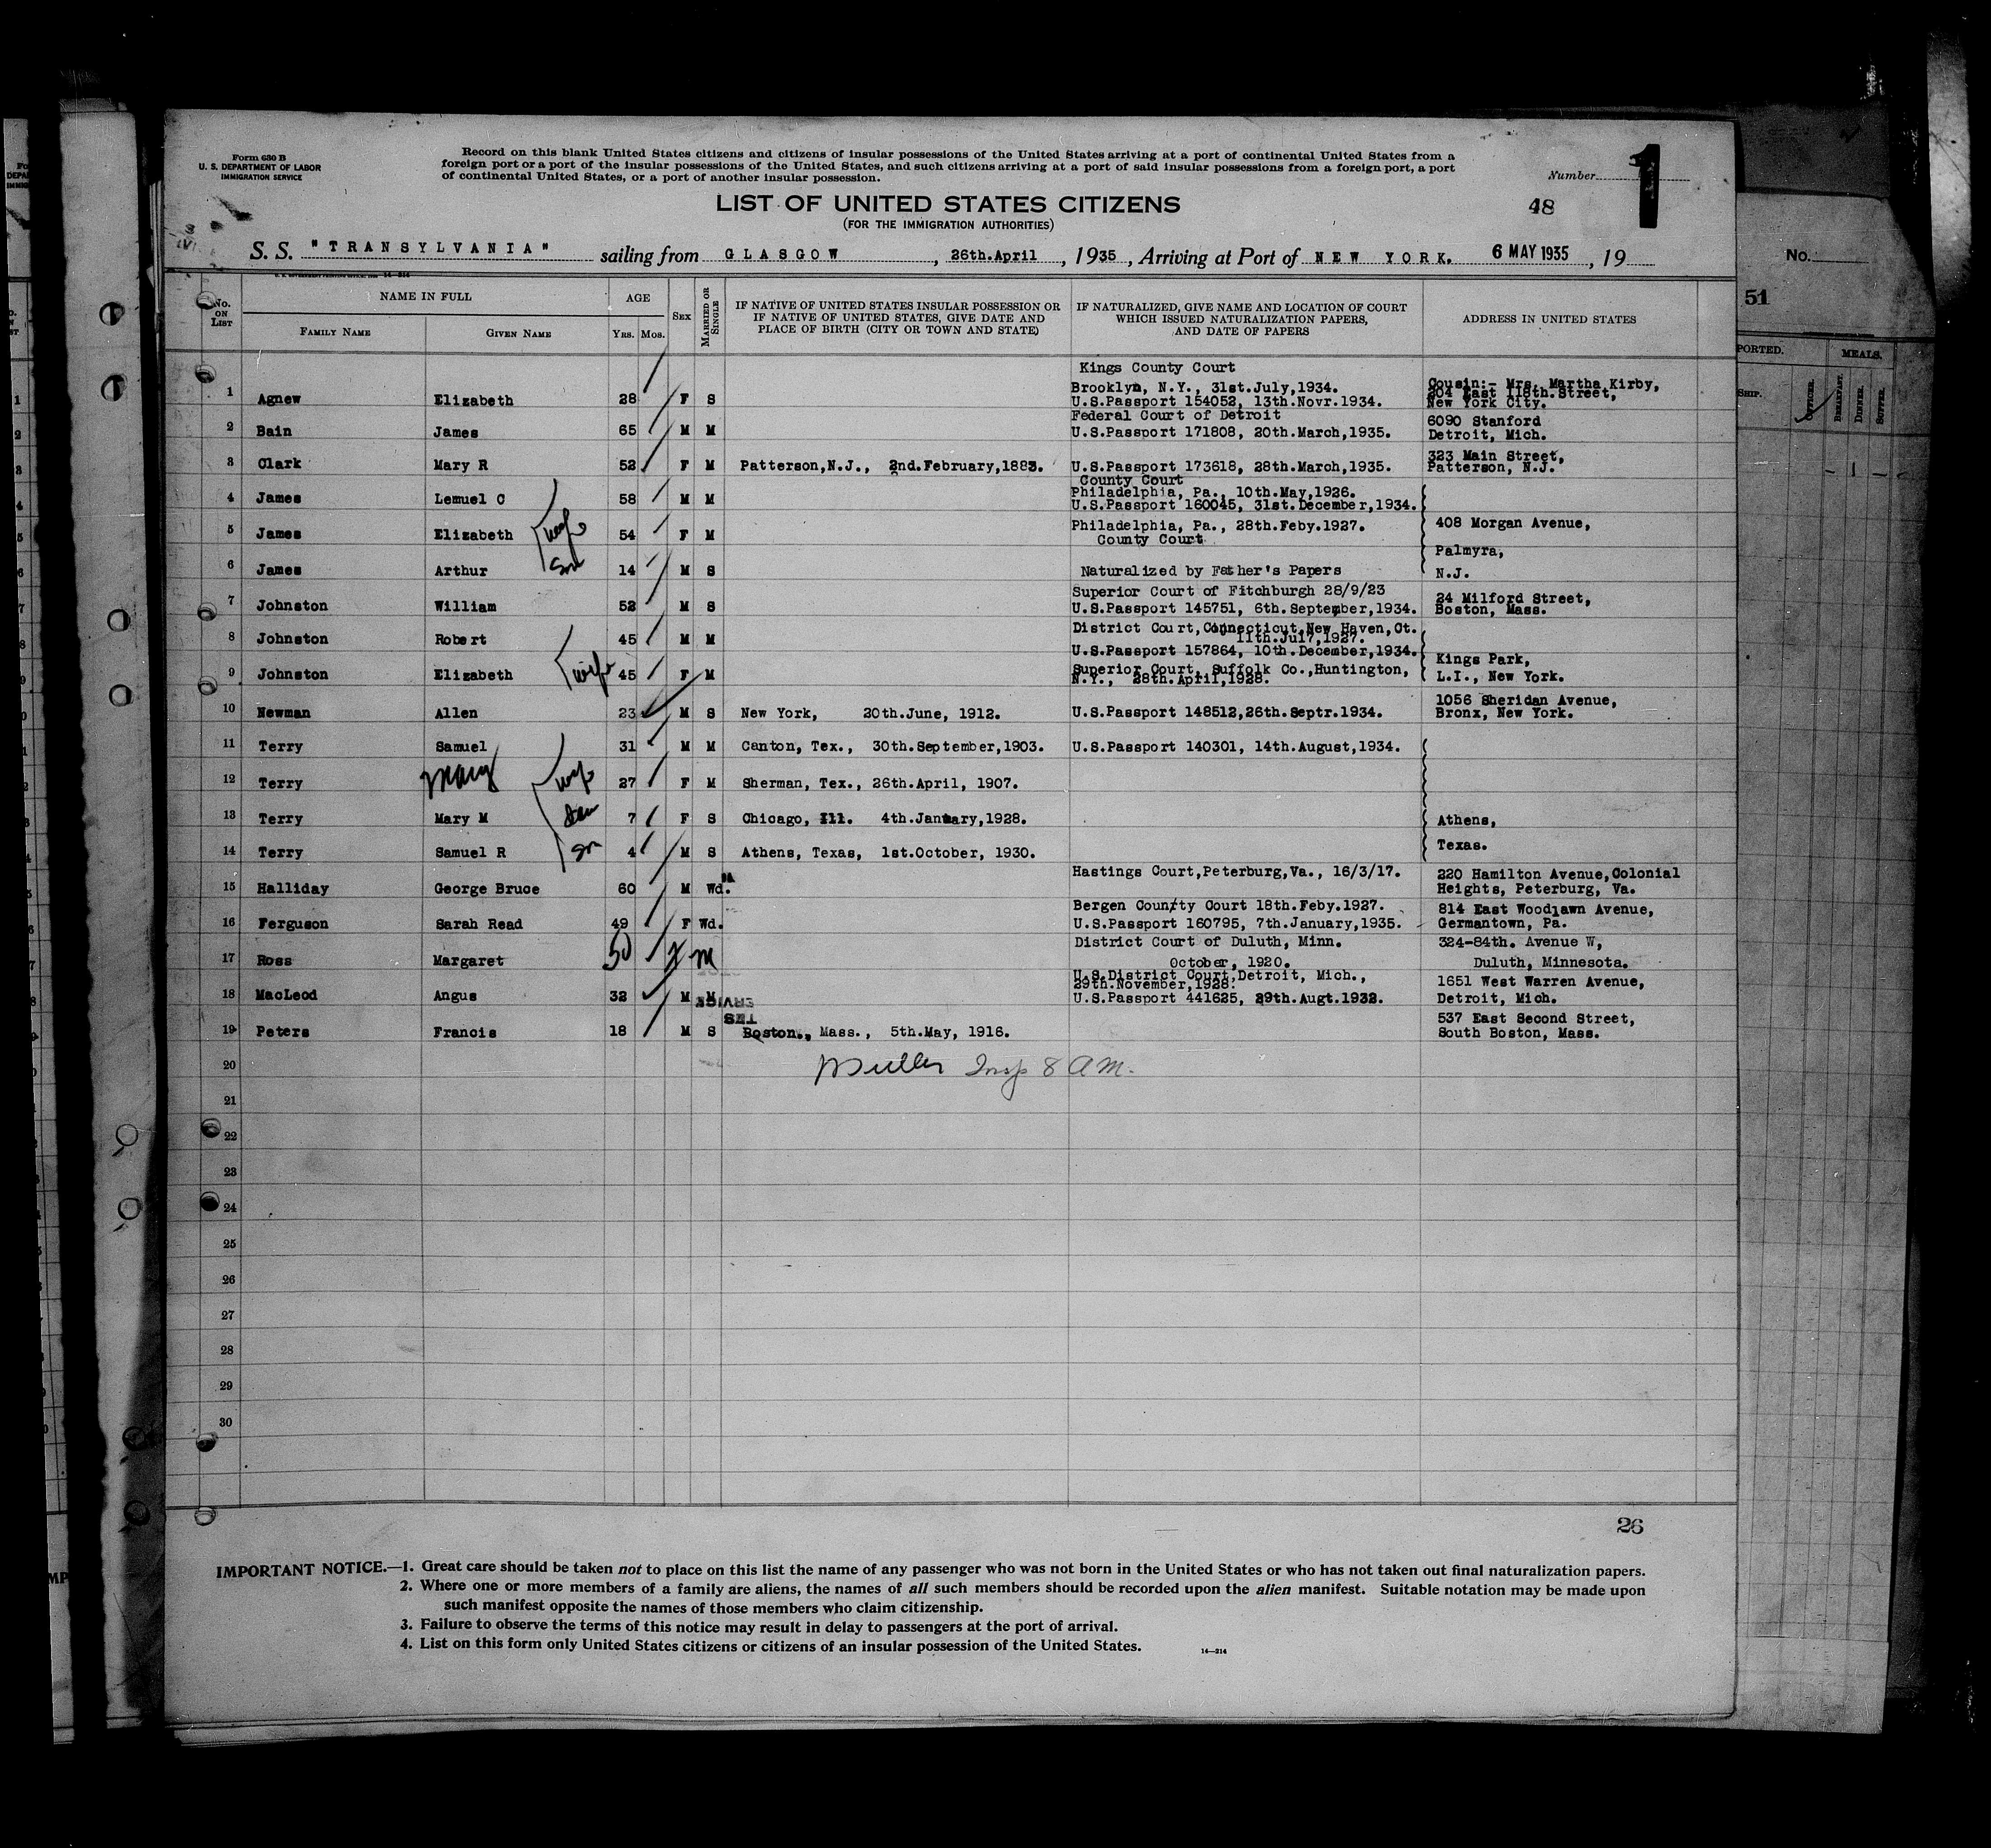 Form 630 B
U. S. DEPARTMENT OF LABOR
IMMIGRATION SERVICE
Record on this blank United States citizens and citizens of insular possessions of the United States arriving at a port of continental United States from a
foreign port or a port of the insular possessions of the United States, and such citizens arriving at a port of said insular possessions from a foreign port, a port
of continental United States, or a port of another insular possession.
Number 1
LIST OF UNITED STATES CITIZENS
48
(FOR THE IMMIGRATION AUTHORITIES)
S. S. "TRANSYLVANIA" sailing from GLASGOW, 26th.April, 1935, Arriving at Port of NEW YORK. 6 MAY 1935, 19
No.
51
No. ON LIST
NAME IN FULL
FAMILY NAME
GIVEN NAME
AGE
YRS. MOS.
SEX
MARRIED OR SINGLE
IF NATIVE OF UNITED STATES INSULAR POSSESSION OR
IF NATIVE OF UNITED STATES, GIVE DATE AND
PLACE OF BIRTH (CITY OR TOWN AND STATE)
IF NATURALIZED, GIVE NAME AND LOCATION OF COURT
WHICH ISSUED NATURALIZATION PAPERS,
AND DATE OF PAPERS
ADDRESS IN UNITED STATES
PORTED.
MEALS.
SHIP.
OFFICER.
BREAKFAST.
DINNER.
SUPPER.
Kings County Court
Brooklyn, N.Y., 31st.July,1934.
Cousin:- Mrs. Martha Kirby,
204 East 118th.Street,
1 Agnew Elizabeth 28 F S U.S.Passport 154052, 13th.Novr.1934. New York City.
Federal Court of Detroit
6090 Stanford
2 Bain James 65 M M U.S.Passport 171808, 20th.March,1935. Detroit, Mich.
323 Main Street,
3 Clark Mary R 52 F M Patterson,N.J., 2nd.February,1883. U.S.Passport 173618, 28th.March,1935. Patterson, N.J.
County Court
Philadelphia, Pa., 10th.May,1926.
4 James Lemuel C 58 M M U.S.Passport 160045, 31st.December,1934.
5 James Elizabeth wife 54 F M Philadelphia, Pa., 28th.Feby.1927. 408 Morgan Avenue,
County Court
Palmyra,
6 James Arthur Son 14 M S Naturalized by Father's Papers N.J.
Superior Court of Fitchburgh 28/9/23
24 Milford Street,
7 Johnston William 52 M S U.S.Passport 145751, 6th.September,1934. Boston, Mass.
District Court,Connecticut,New Haven,Ct.
8 Johnston Robert 45 M M 11th.July,1927.
U.S.Passport 157864, 10th.December,1934.
Kings Park,
Superior Court, Suffolk Co.,Huntington,
9 Johnston Elizabeth wife 45 F M N.Y., 28th.April,1928. L.I., New York.
1056 Sheridan Avenue,
10 Newman Allen 23 M S New York, 20th.June, 1912. U.S.Passport 148512,26th.Septr.1934. Bronx, New York.
11 Terry Samuel 31 M M Canton, Tex., 30th.September,1903. U.S.Passport 140301, 14th.August,1934.
12 Terry Mary wife 27 F M Sherman, Tex., 26th.April, 1907.
13 Terry Mary M Dau 7 F S Chicago, Ill. 4th.January,1928. Athens,
14 Terry Samuel R Son 4 M S Athens, Texas, 1st.October, 1930. Texas.
Hastings Court,Peterburg,Va., 16/3/17. 220 Hamilton Avenue,Colonial
15 Halliday George Bruce 60 M Wd. Heights, Peterburg, Va.
Bergen County Court 18th.Feby.1927. 814 East Woodlawn Avenue,
16 Ferguson Sarah Read 49 F Wd. U.S.Passport 160795, 7th.January,1935. Germantown, Pa.
District Court of Duluth, Minn. 324-84th. Avenue W,
17 Ross Margaret 50 F M October, 1920. Duluth, Minnesota.
U.S.District Court,Detroit, Mich.,
29th.November,1928. 1651 West Warren Avenue,
18 MacLeod Angus 32 M M U.S.Passport 441625, 29th.Augt.1932. Detroit, Mich.
537 East Second Street,
19 Peters Francis 18 M S Boston., Mass., 5th.May, 1916. South Boston, Mass.
20 Muller Insp 8 AM.
21
22
23
24
25
26
27
28
29
30
26
IMPORTANT NOTICE.—1. Great care should be taken not to place on this list the name of any passenger who was not born in the United States or who has not taken out final naturalization papers.
2. Where one or more members of a family are aliens, the names of all such members should be recorded upon the alien manifest. Suitable notation may be made upon
such manifest opposite the names of those members who claim citizenship.
3. Failure to observe the terms of this notice may result in delay to passengers at the port of arrival.
4. List on this form only United States citizens or citizens of an insular possession of the United States.
14—214